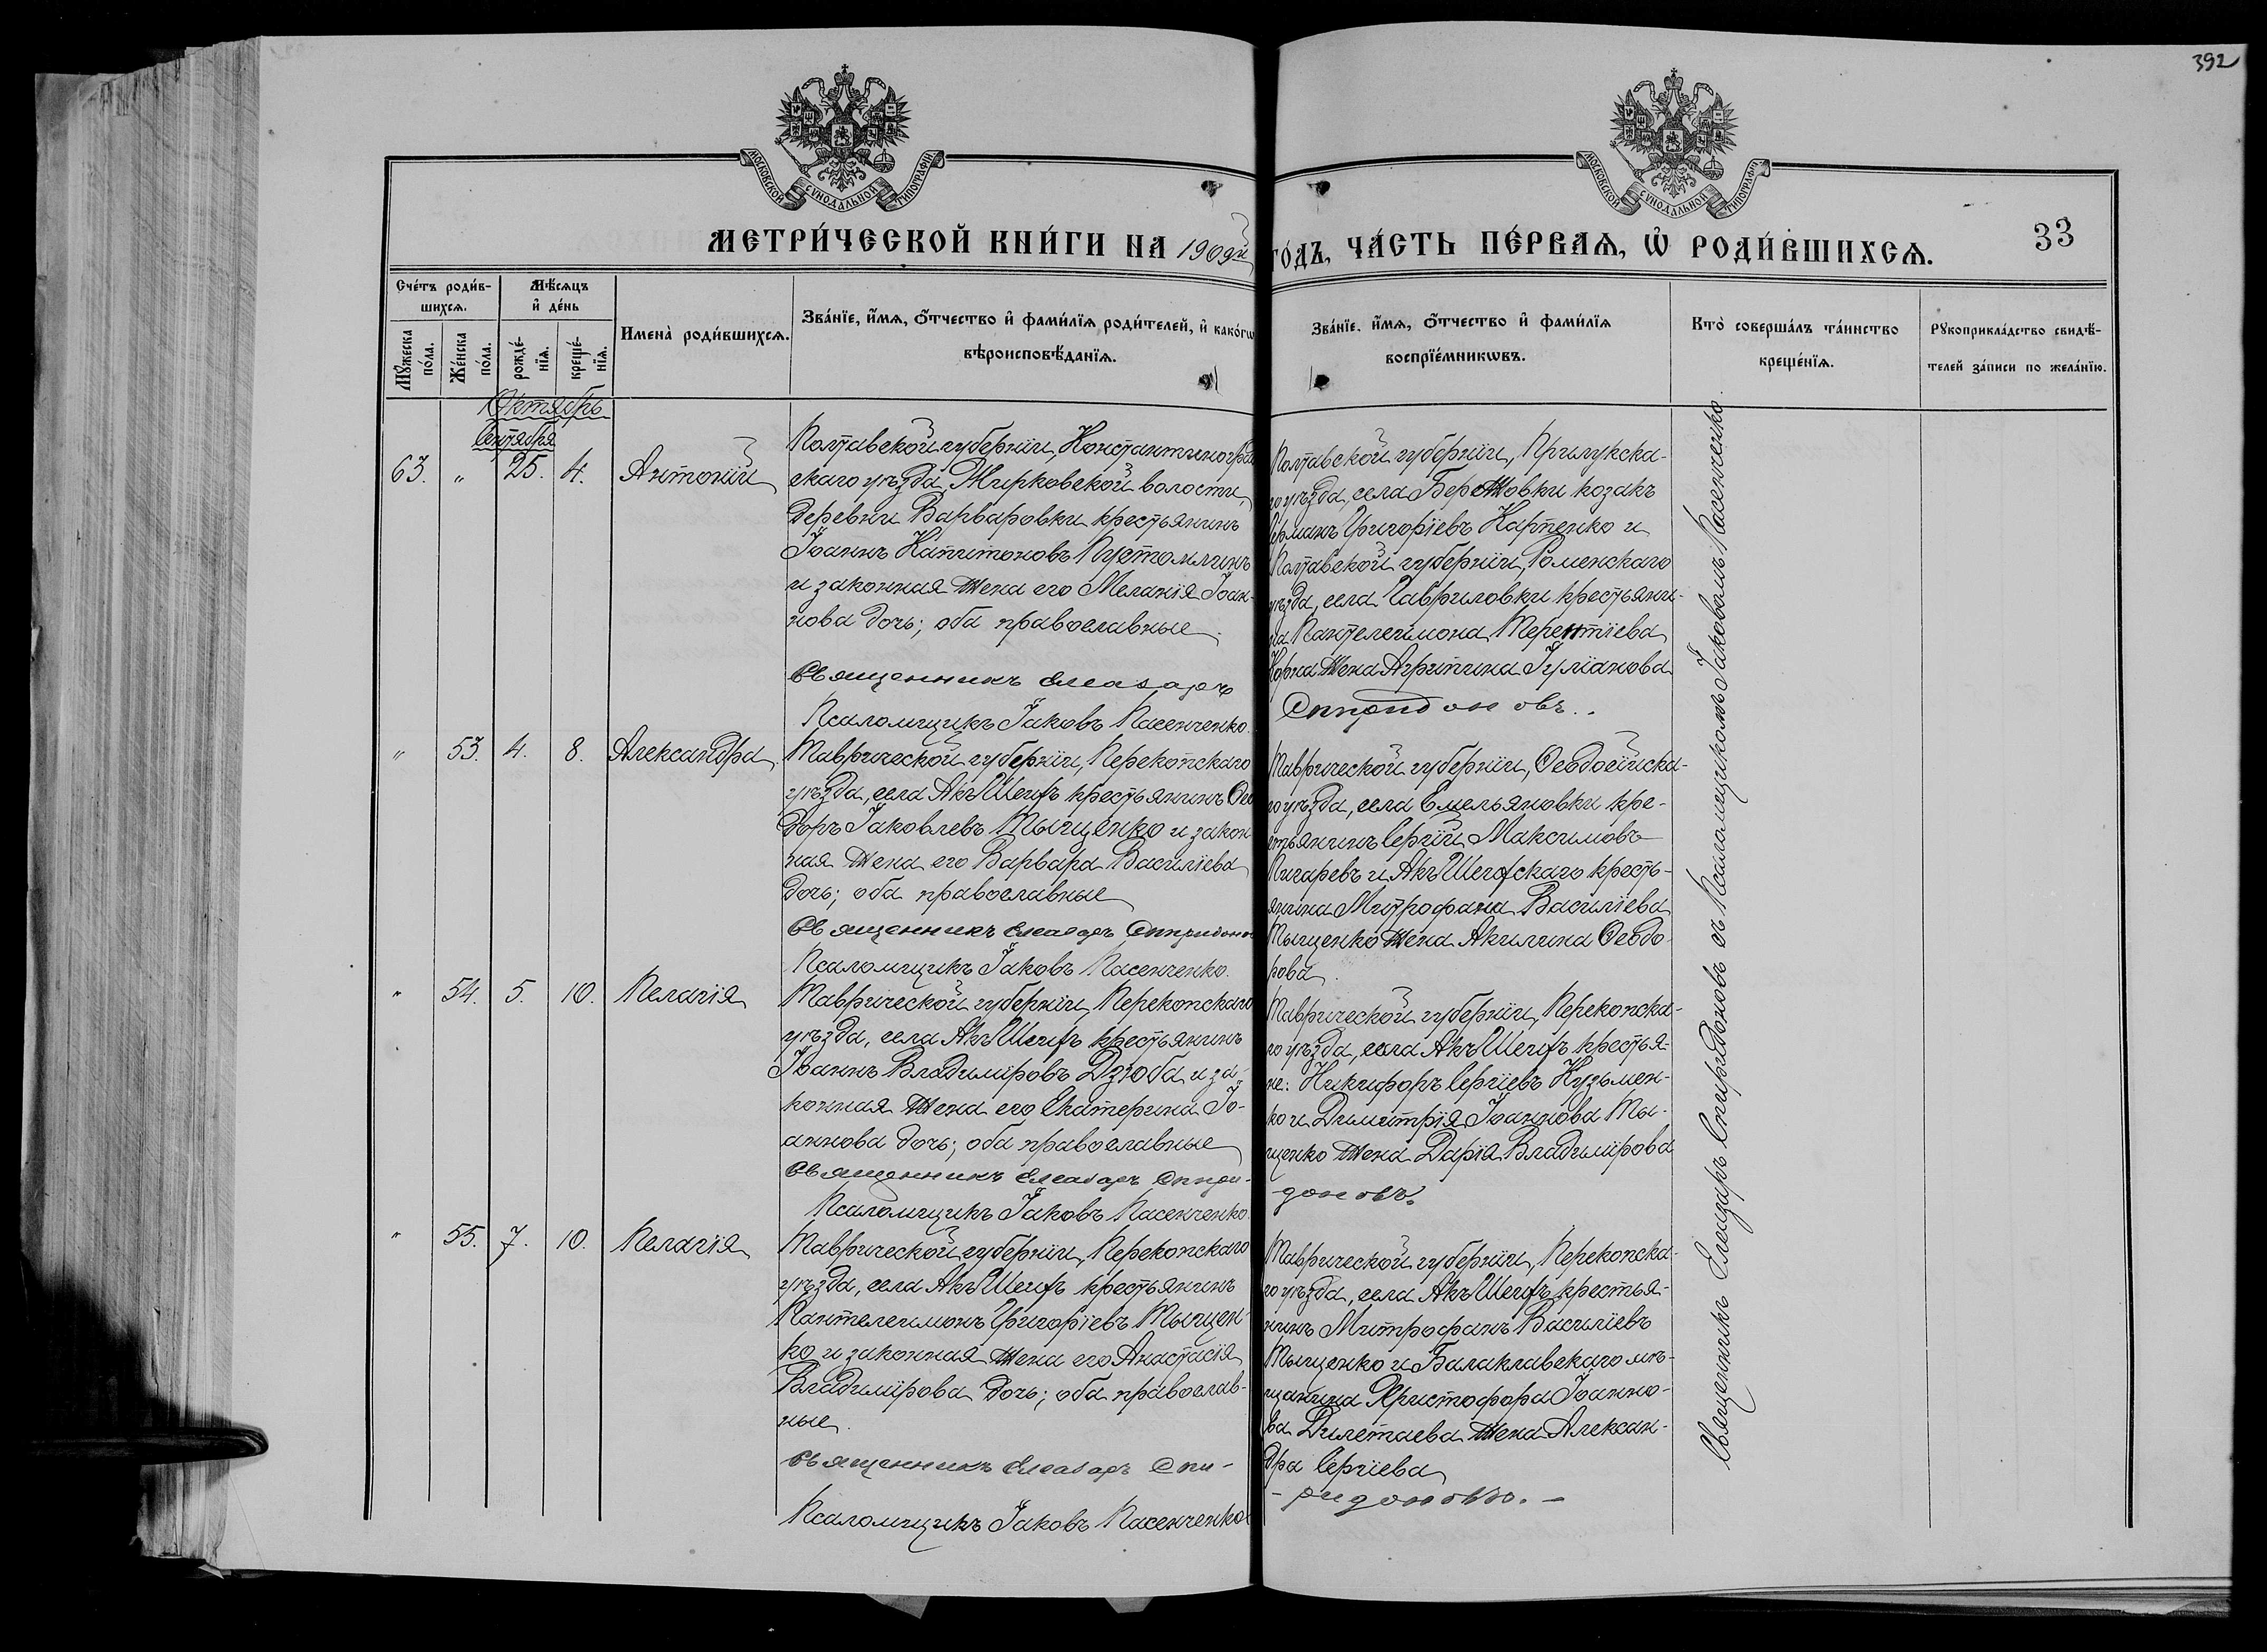 392
МОСКОВСКОЙ СѴНОДАЛЬНОЙ ТИПОГРАФІИ
МОСКОВСКОЙ СѴНОДАЛЬНОЙ ТИПОГРАФІИ
МЕТРИ́ЧЕСКОЙ КНИ́ГИ НА 1909й
ГО́ДЪ, ЧА́СТЬ ПЕ́РВАѦ, Ѡ҆ РОДИ́ВШИХСѦ.
33
Сче́тъ роди́в-
шихсѧ.
Мꙋ́жеска по́ла.
Же́нска по́ла.
Мѣ́сѧцъ
и҆ де́нь
рожде́-
нїѧ.
креще́-
нїѧ.
Имена̀ роди́вшихсѧ.
Зва́нїе, и҆́мѧ, ѻ҆́тчество и҆ фами́лїѧ роди́телей, и҆ како́гѡ
вѣроисповѣ́данїѧ.
Зва́нїе, и҆́мѧ, ѻ҆́тчество и҆ фами́лїѧ
воспрїе́мникѡвъ.
Кто̀ соверша́лъ та́инство
креще́нїѧ.
Рꙋкоприкла́дство свидѣ́-
телей за́писи по жела́нїю.
Октябрь
Сентября
63. " 25. 4. Антоній
Полтавской губерніи, Константиноград
скаго уѣзда, Жирковской волости,
деревни Варваровки крестьянинъ
Іоаннъ Капитоновъ Пустомлинъ
и законная жена его Меланія Іоан-
нова дочь; оба православные.
Священникъ Елеазаръ
Псаломщикъ Іаковъ Пасенченко.
Полтавской губерніи, Прилукска-
го уѣзда, села Бережовки козакъ
Григоріевъ Карпенко и
Полтавской губерніи, Роменскаго
уѣзда, села Гавриловки крестьяни-
на Пантелеимона Терентіева
жена Агрипина Іуліанова
Спиридоновъ.
" 53. 4. 8. Александра
Таврической губерніи, Перекопскаго
уѣзда, села Акъ Шеихъ крестьянинъ Ѳео
доръ Іаковлевъ Тыщенко и закон
ная жена его Варвара Василіева
дочь; оба православные
Священникъ Елеазаръ Спиридонов
Псаломщикъ Іаковъ Пасенченко.
Таврической губерніи, Ѳеодосійска-
го уѣзда, села Емельяновки кре-
стьянинъ Сергій Максимовъ
Пигаревъ и Акъ Шеихскаго кресть-
янина Митрофана Василіева
Тыщенко жена Акилина Ѳеодо-
рова.
" 54. 5. 10. Пелагія
Таврической губерніи, Перекопскаго
уѣзда, села Акъ Шеихъ крестьянинъ
Іоаннъ Владиміровъ Дзюба и за-
конная жена его Екатерина Іо-
аннова дочь; оба православные
Священникъ Елеазаръ Спири-
Псаломщикъ Іаковъ Пасенченко.
Таврической губерніи, Перекопска-
го уѣзда, села Акъ Шеихъ крестья-
не: Никифоръ Сергіевъ Кузьмен-
ко и Димитрія Іоаннова Ты-
щенко жена Дарія Владимірова
доновъ.
" 55. 7. 10. Пелагія
Таврической губерніи, Перекопскаго
уѣзда, села Акъ Шеихъ крестьянинъ
Пантелеимонъ Григоріевъ Тыщен-
ко и законная жена его Анастасія
Владимірова дочь; оба православ-
ные.
Священникъ Елеазаръ Спи-
Псаломщикъ Іаковъ Пасенченко
Таврической губерніи, Перекопска-
го уѣзда, села Акъ Шеихъ крестья-
нинъ Митрофанъ Василіевъ
Тыщенко и Балаклавскаго мѣ-
щанина Христофора Іоанно-
ва Дилетаева жена Алексан-
дра Сергіева
-ридоновъ.-
Священникъ Елеазаръ Спиридоновъ съ Псаломщикомъ Іаковомъ Пасенченко.